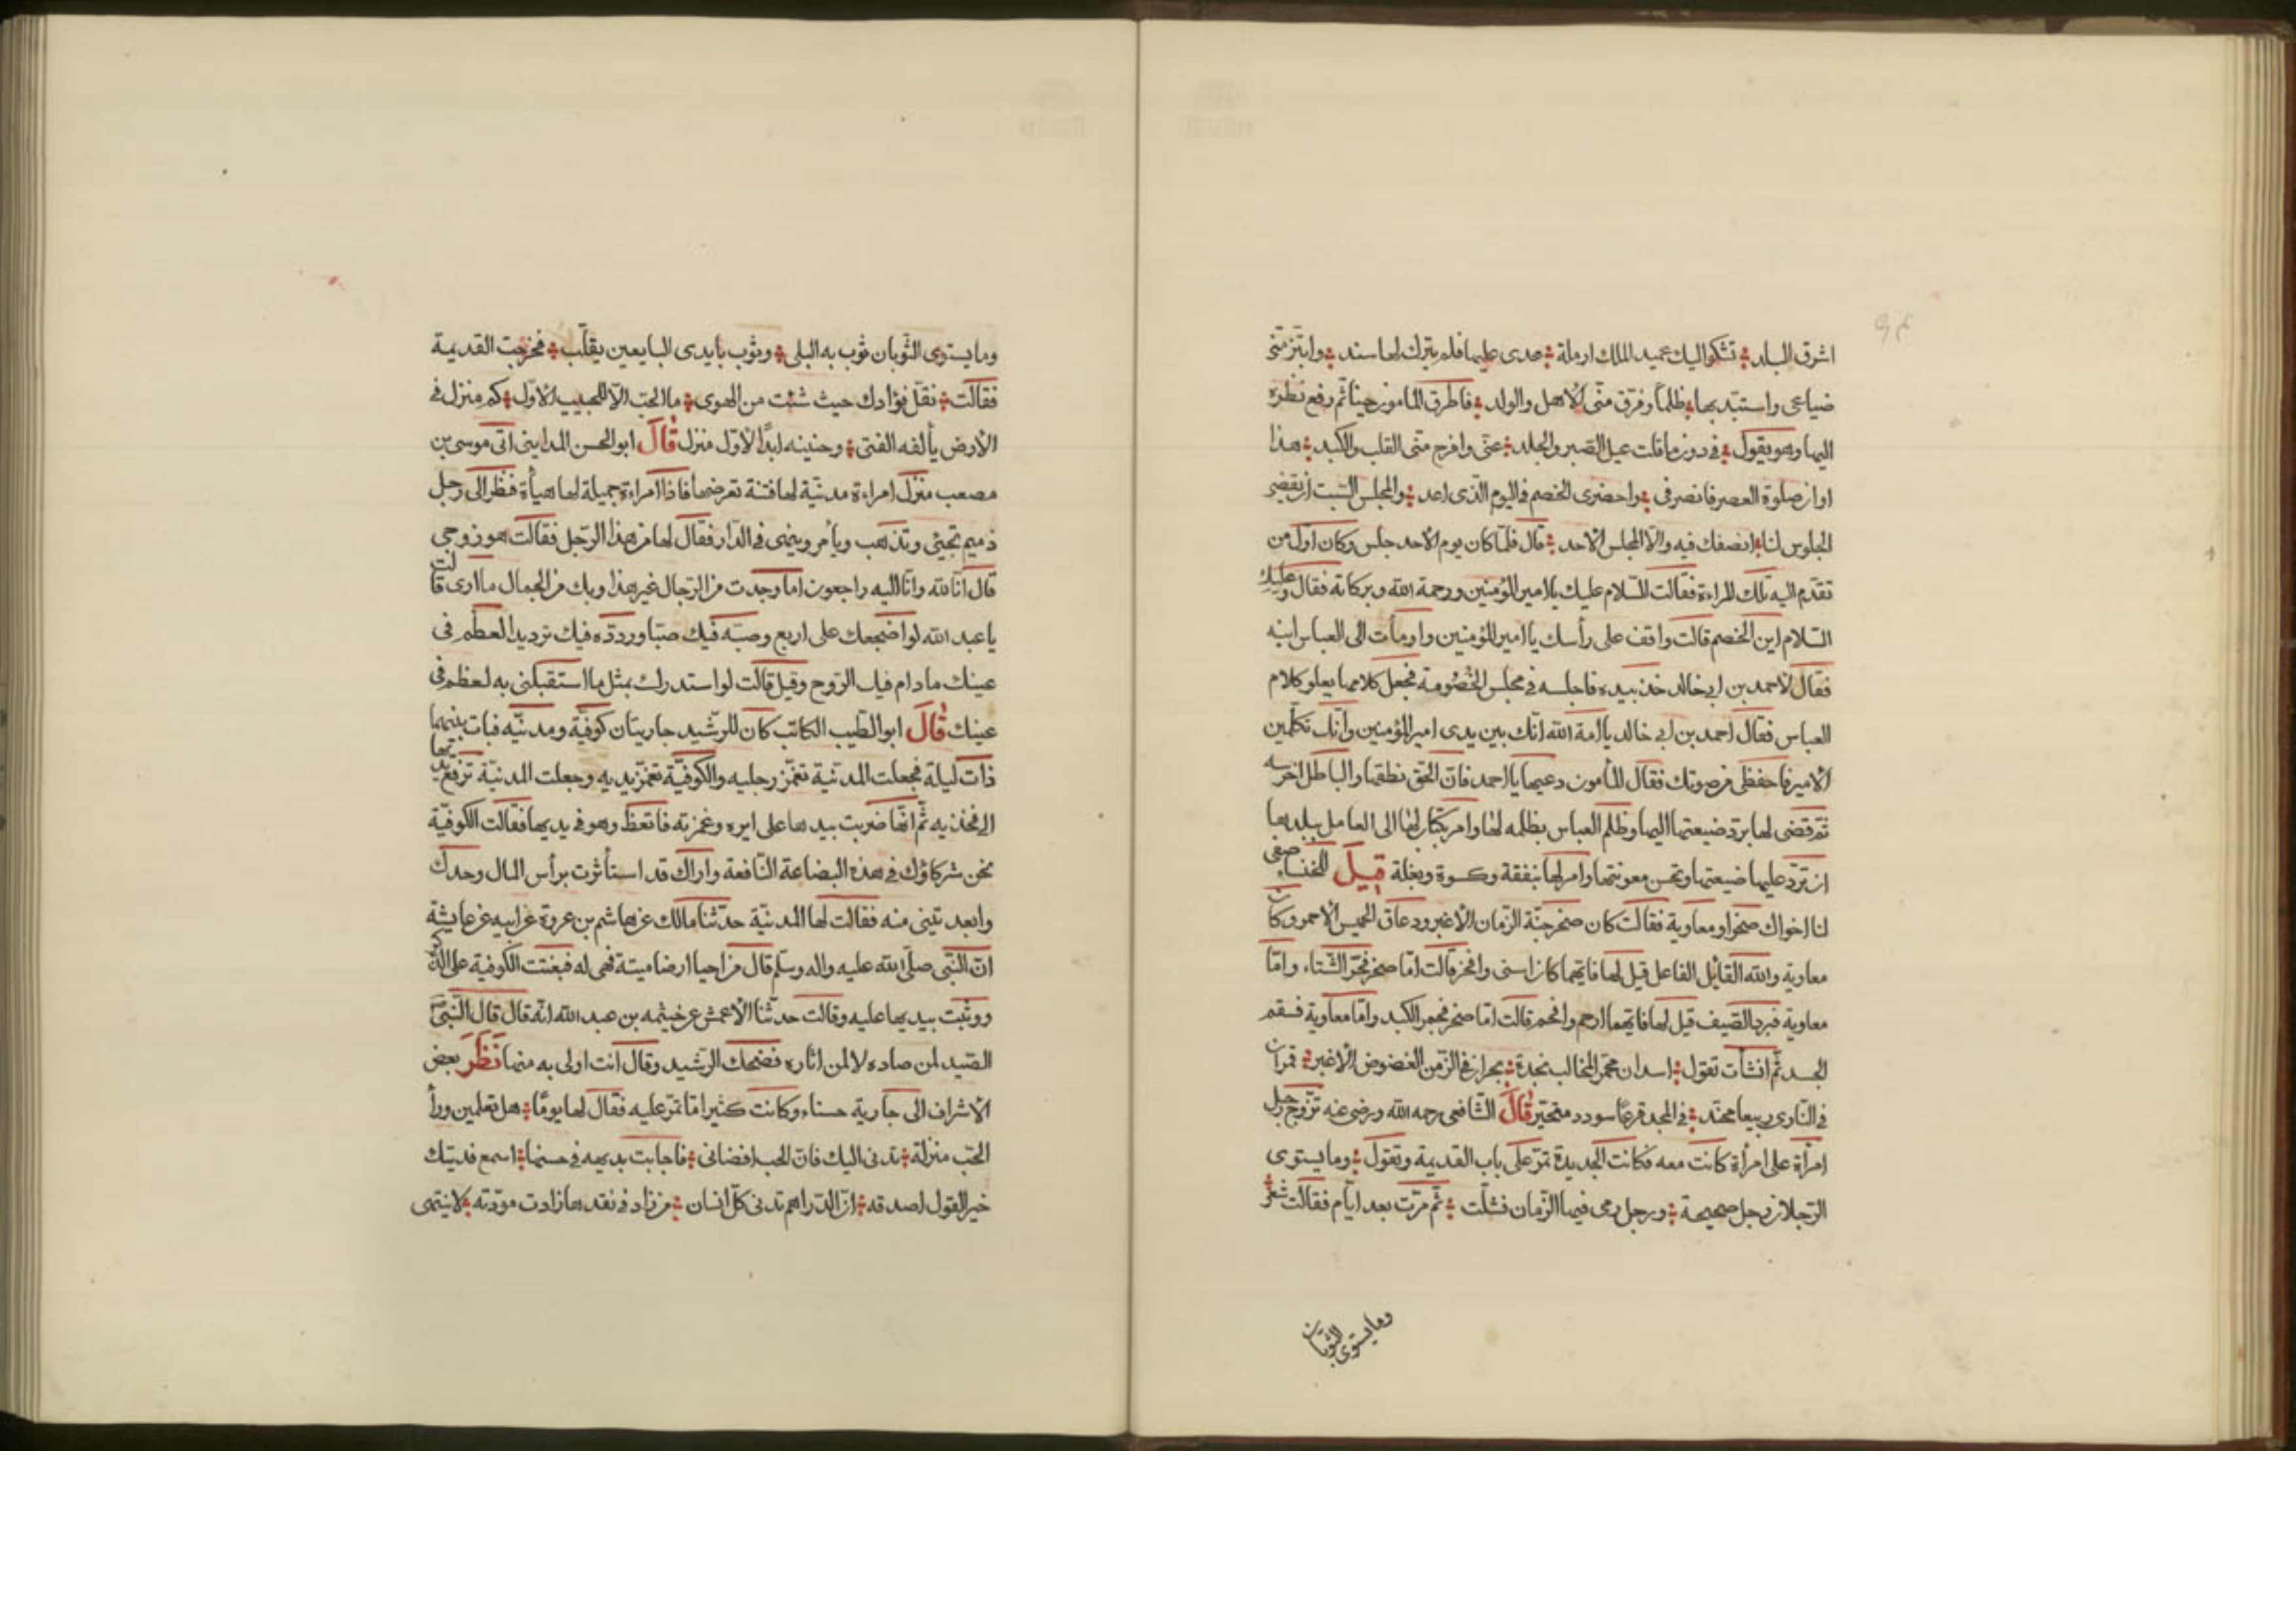 اشرق البلد تشكو اليك عميد الملك ارملة عدى عليها فلم يترك لها سند وابتز منى
ضياعى واستبد بها ظلما وفرق منى الاهل والولد فاطرق المامون حينا ثم رفع نظره
اليها وهو يقول فى دون ما قلت عيل الصبر والجلد عنى وافرح منى القلب والكبد هذا
اوان صلوة العصر فانصرفى واحضرى الخصم فى اليوم الذى اعد والمجلس السبت ان نقضى
الجلوس لنا انصفك فيه والا المجلس الاحد قال فلما كان يوم الاحد جلس وكان اول من
تقدم اليه تلك المراءة فقالت السلام عليك يا امير المؤمنين ورحمة الله وبركاته فقال وعليك
السلام اين الخصم قالت واقف على رأسك يا امير المؤمنين واومأت الى العباس ابنه
فقال لاحمد بن ابى خالد خذ بيده فاجلسه فى مجلس الخصومة فجعل كلامها يعلو كلام
العباس فقال احمد بن ابى خالد يا امة الله انك بين يدى امير المؤمنين وانك تكلمين
الامير فاحفظى من صوتك فقال المأمون دعيها يا احمد فان الحق نطقها والباطل اخرسه
ثم قضى لها برد ضيعتها اليها وظلم العباس بظلمه لها وامر بكتاب لها الى العامل ببلدها
ان ترد عليها ضيعتها وتحسن معونتها وامر لها بنفقة وكسوة وبغلة قيل للخنساء صفى
لنا اخواك صخرا ومعاوية فقالت كان صخر جنة الزمان الاغبر ودعاق الخميس الاحمر وكان
معاوية والله القائل الفاعل قيل لها فايهما كان اسنى وافخر قالت اما صخر فحر الشتاء واما
معاوية فبرد الصيف قيل لها فايهما ارحم وافحم قالت اما صخر فجمر الكبد واما معاوية فسقم
الجسد ثم انشأت تقول اسدان محمرا المخالب نجدة بحران فى الزمن الغضوض الاغبر قمران
فى النادى ربيعا محتد فى المجد فرعا سودد متخير قال الشافعى رحمه الله ورضى عنه تزوج رجل
امرأة على امرأة كانت معه فكانت الجديدة تمر على باب القديمة وتقول وما يستوى
الرجلان رجل صحيحة ورجل رمى فيها الزمان فشلت ثم مرت بعد ايام فقالت شعر
وما يستوى الثوبان
وما يستوى الثوبان ثوب به البلى وثوب بايدى البايعين يقلب فخرجت القديمة
فقالت نقل فؤادك حيث شئت من الهوى ما الحب الا للحبيب الاول كم منزل فى
الارض يألفه الفتى وحنينه ابدا لاول منزل قال ابو الحسن المداينى اتى موسى بن
مصعب منزل امراءة مدنية لها فتنة تعرضها فاذا امراءة جميلة لها هيأة فنظر الى رجل
ذميم تجيئ وتذهب ويأمر وينهى فى الدار فقال لها من هذا الرجل فقالت هو زوجى
قال انا لله وانا اليه راجعون اما وجدت من الرجال غير هذا وبك من الجمال ما ارى قالت
يا عبد الله لو اضجعك على اربع وصبه فيك صبا وردده فيك ترديدا لعظم فى
عينك ما دام فيك الروح وقيل قالت لو استدبرك بمثل ما استقبلنى به لعظم فى
عينك قال ابو الطيب الكاتب كان للرشيد جاريتان كوفية ومدنية فبات بينهما
ذات ليلة فجعلت المدنية تغمز رجليه والكوفية تغمز يديه وجعلت المدنية ترفع يديها
الى فخذيه ثم انها ضربت بيدها على ايره وغمزته فانعظ وهو فى يديها فقالت الكوفية
نحن شركاؤك فى هذه البضاعة النافعة واراك قد استأثرت برأس المال وحدك
وابعد تينى منه فقالت لها المدنية حدثنا مالك عن هاشم بن عروة عن ابيه عن عايشة
ان النبى صلى الله عليه واله وسلم قال من احيا ارضا ميتة فهى له فبغتت الكوفية على الذكر
ووثبت بيديها عليه وقالت حدثنا الاعمش عن خيثمه بن عبد الله انه قال قال النبى
الصيد لمن صاده لا لمن اثاره فضحك الرشيد وقال انت اولى به منها نظر بعض
الاشراف الى جارية حسناء وكانت كثيرا ما تمر عليه فقال لها يوما هل تعلمين وراء
الحب منزلة تدنى اليك فان الحب افضانى فاجابت بديهه فى حسنها اسمع فديتك
خير القول اصدقه ان الدراهم تدنى كل انسان من زاد فى نقدها زادت مودته لا ينتهى